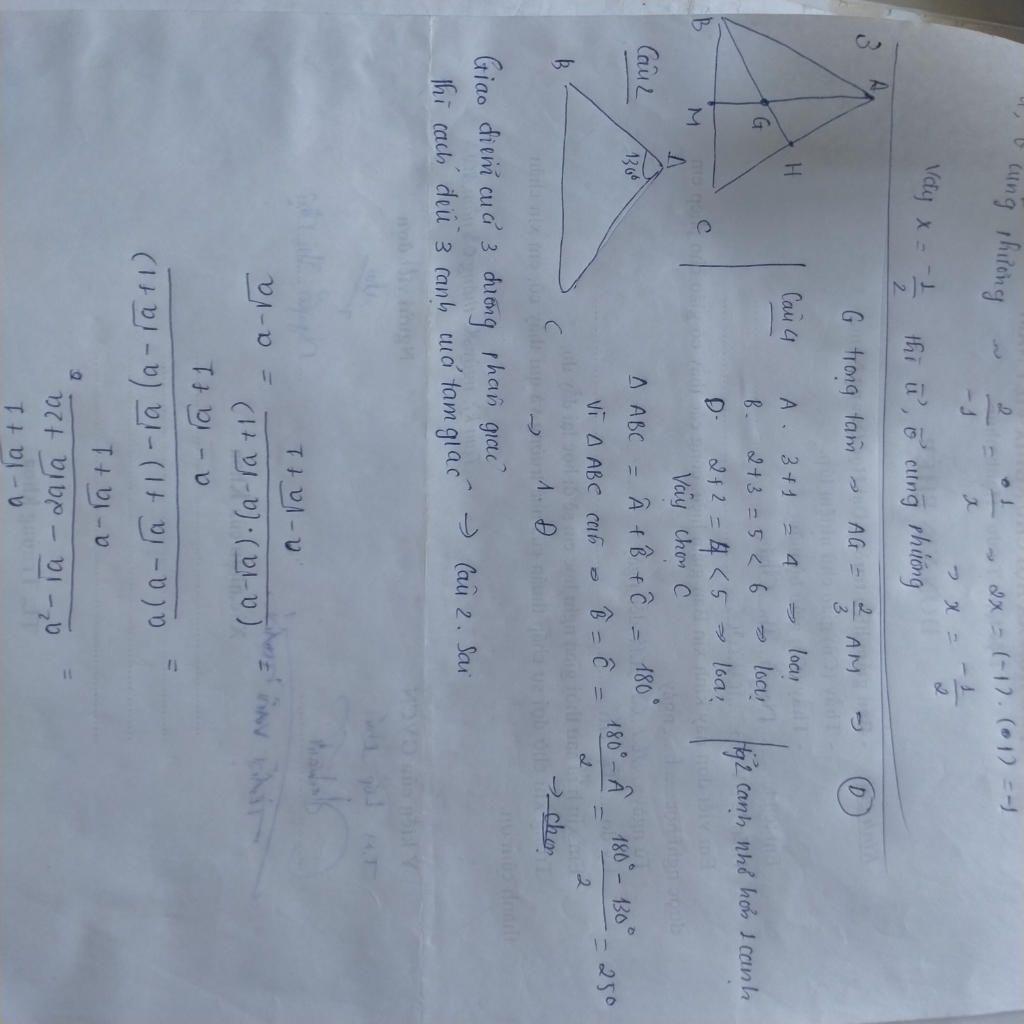 cùng phương → 2/-1 = 1/x → 2x = (-1).(1) = -1
→ x = -1/2
Vậy x = -1/2 thì u, v cùng phương
3
A
B
G
H
M
C
G trọng tâm → AG = 2/3 AM → D
Câu 4
A. 3+1 = 4 → loại
B. 2+3 = 5 < 6 → loại
D. 2+2 = 4 < 5 → loại
Vậy chọn C
2 cạnh nhỏ hơn 1 cạnh
Câu 2
A
130°
B
C
Δ ABC = Â + B̂ + Ĉ = 180°
Vì Δ ABC cân → B̂ = Ĉ = (180° - Â)/2 = (180° - 130°)/2 = 250
→ 1. Đ
→ chọn
Giao điểm cuả 3 đường phân giác
thì cách đều 3 cạnh cuả tam giác → Câu 2. Sai
= (a-√a).(a-√a+1) / (a-√a+1) = a-√a
= a(a-√a+1) - √a(a-√a+1) / (a-√a+1)
= a² - √a - 2a√a + 2a / (a-√a+1)
a-√a+1